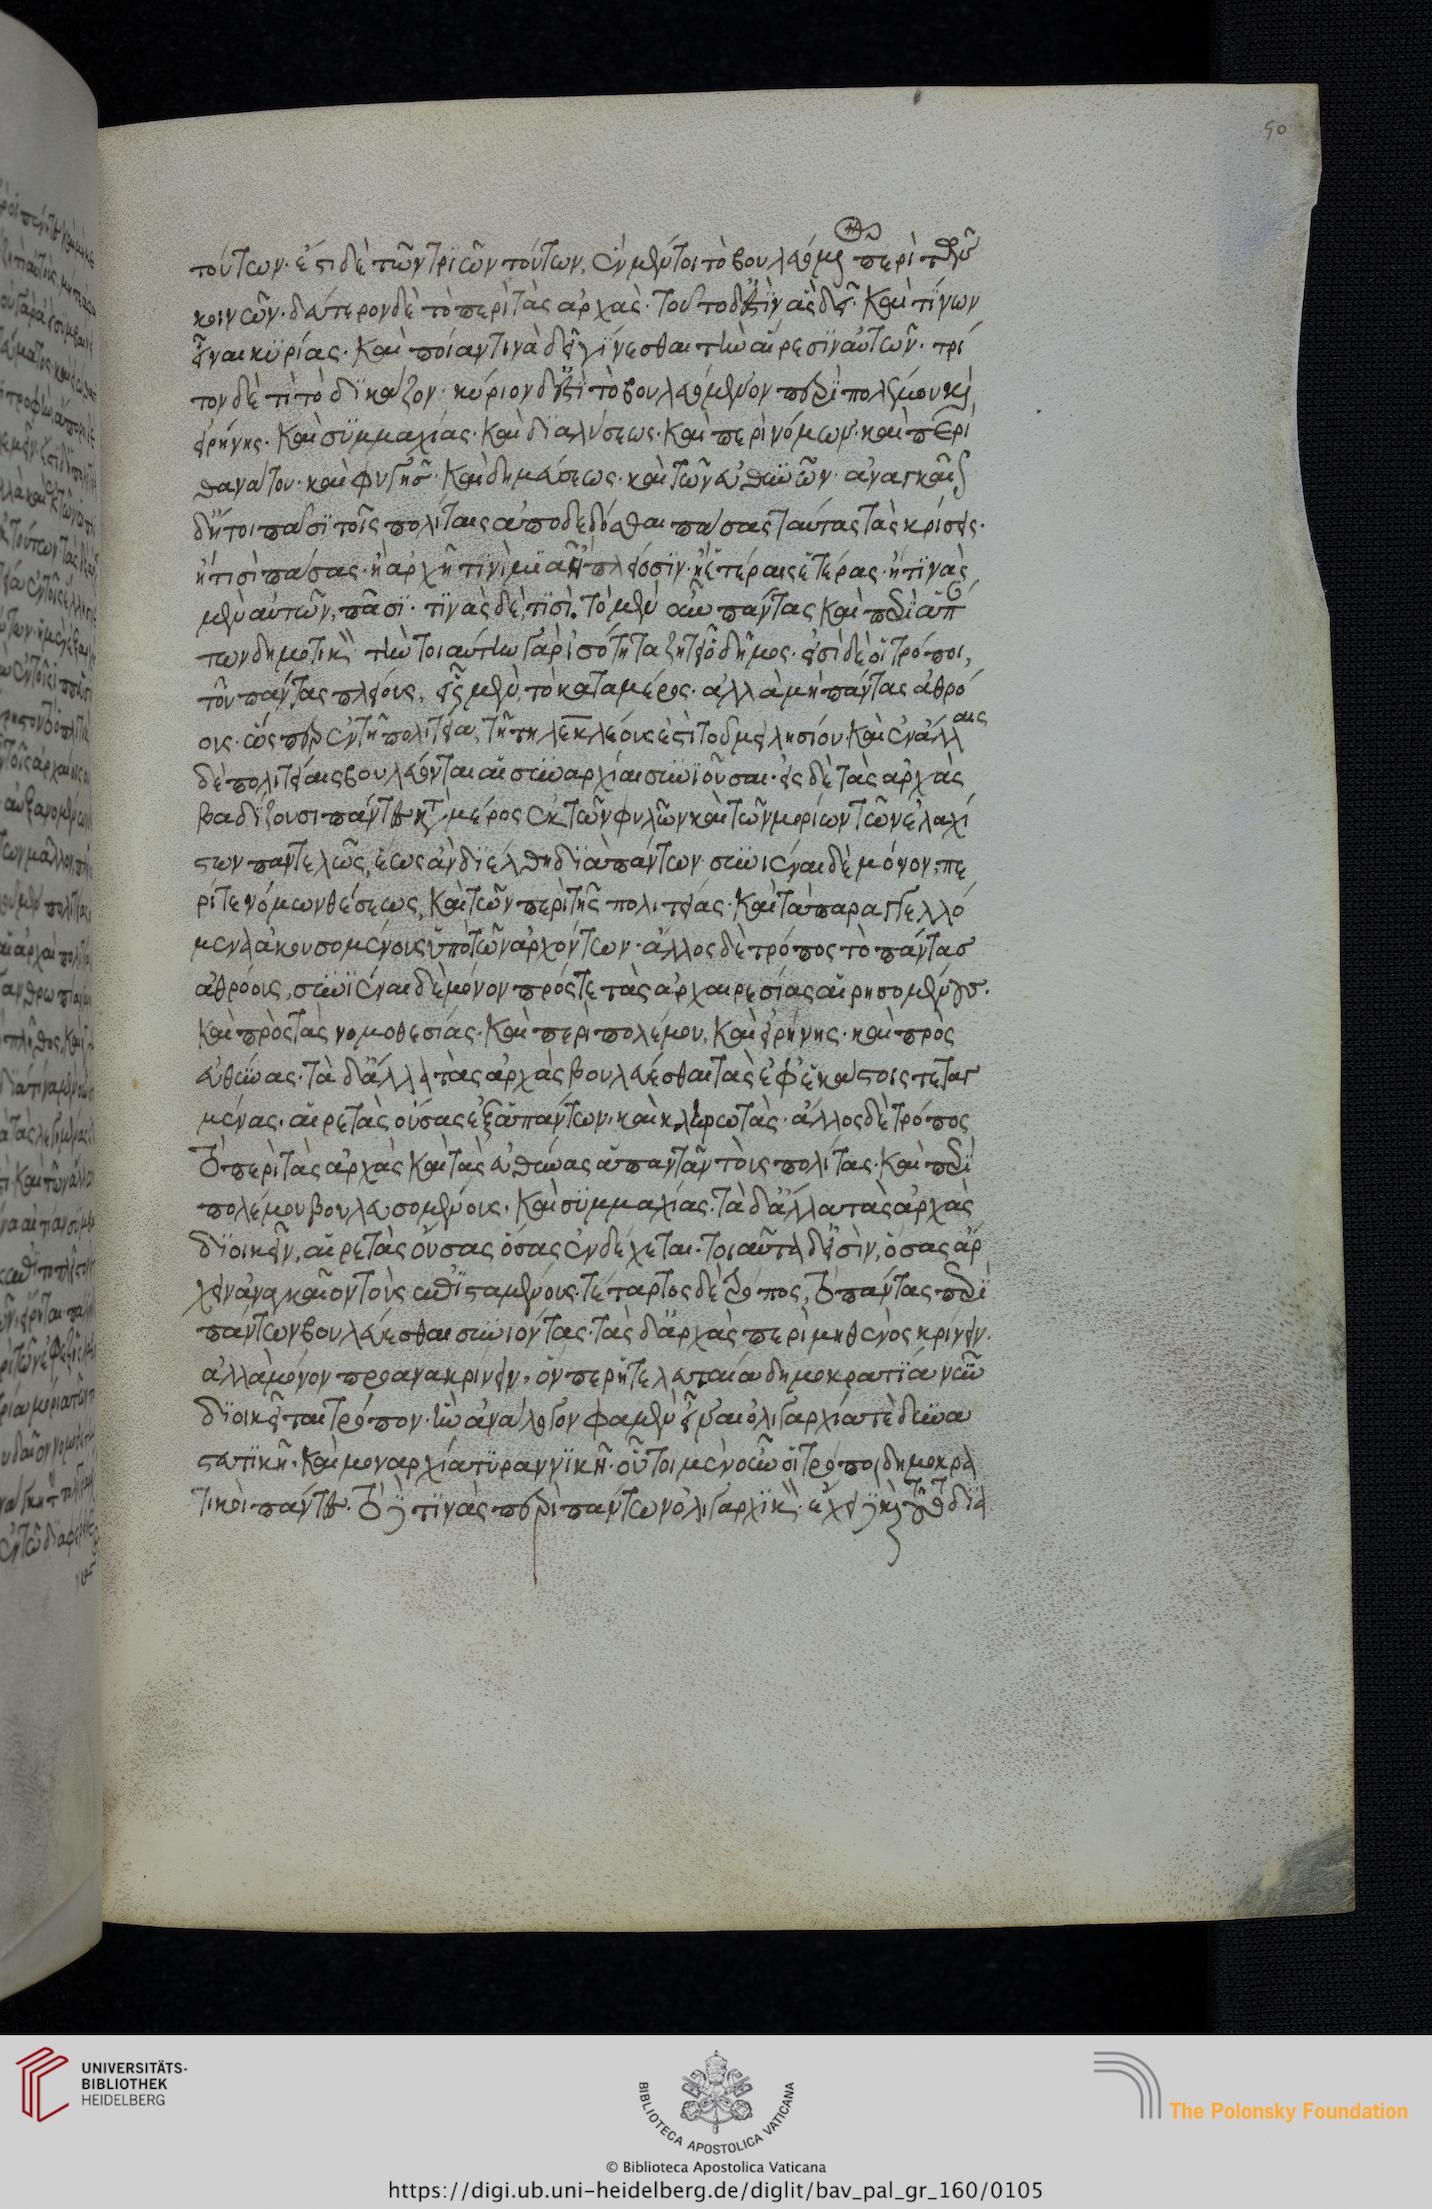 50
τούτων· ἔστι δὲ τῶν τριῶν τούτων, ἓν μέν τοι τὸ βουλευόμενον περὶ τῶν
κοινῶν· δεύτερον δὲ τὸ περὶ τὰς ἀρχάς· τοῦτο δ' ἐστὶν ἃς δεῖ· καὶ τίνων
εἶναι κυρίας· καὶ ποίαν τινὰ δεῖ γίνεσθαι τὴν αἵρεσιν αὐτῶν· τρί
τον δὲ τί τὸ δικάζον· κύριον δ' ἐστὶ τὸ βουλευόμενον περὶ πολέμου καὶ
εἰρήνης· καὶ συμμαχίας· καὶ διαλύσεως· καὶ περὶ νόμων· καὶ περὶ
θανάτου· καὶ φυγῆς· καὶ δημεύσεως· καὶ τῶν εὐθυνῶν· ἀναγκαῖον
δ' ἤτοι πᾶσι τοῖς πολίταις ἀποδεδόσθαι πάσας ταύτας τὰς κρίσεις·
ἢ τισὶ πάσας· ἢ ἀρχῇ τινὶ μιᾷ ἢ πλείοσιν· ἢ ἑτέραις ἑτέρας· ἢ τινὰς
μὲν αὐτῶν, πᾶσι· τινὰς δὲ, τισί. τὸ μὲν οὖν πάντας καὶ περὶ ἁπάν
των δημοτικόν· τὴν τοιαύτην γὰρ ἰσότητα ζητεῖ ὁ δῆμος· εἰσὶ δὲ οἱ τρόποι,
τοῦ πάντας πλείους, εἷς μὲν, τὸ κατα μέρος· ἀλλὰ μὴ πάντας ἀθρό
ους· ὥσπερ ἐν τῇ πολιτείᾳ, τῇ τηλεκλέους ἐστὶ τοῦ μιλησίου· καὶ ἐν ἄλλαις
δὲ πολιτείαις βουλεύονται αἱ συναρχίαι συνιοῦσαι· εἰς δὲ τὰς ἀρχὰς
βαδίζουσι πάντες κατὰ μέρος ἐκ τῶν φυλῶν καὶ τῶν μορίων τῶν ἐλαχί
στων παντελῶς, ἕως ἂν διέλθῃ διὰ πάντων· συνιέναι δὲ μόνον, πε
ρί τε νόμων θέσεως, καὶ τῶν περὶ τῆς πολιτείας· καὶ τὰ παραγγελλό
μενα ἀκουσομένους ὑπὸ τῶν ἀρχόντων· ἄλλος δὲ τρόπος τὸ πάντας
ἀθρόους, συνιέναι δὲ μόνον πρός τε τὰς ἀρχαιρεσίας αἱρησομένους·
καὶ πρὸς τὰς νομοθεσίας· καὶ περὶ πολέμου, καὶ εἰρήνης· καὶ πρὸς
εὐθύνας· τὰ δ' ἄλλα τὰς ἀρχὰς βουλεύεσθαι τὰς ἐφ' ἑκάστοις τεταγ
μένας, αἱρετὰς οὔσας ἐξ ἁπάντων, καὶ κληρωτάς· ἄλλος δὲ τρόπος
τὸ περὶ τὰς ἀρχὰς καὶ τὰς εὐθύνας ἀπαντᾶν τοὺς πολίτας· καὶ περὶ
πολέμου βουλευσομένους, καὶ συμμαχίας· τὰ δ' ἄλλα τὰς ἀρχὰς
διοικεῖν, αἱρετὰς οὔσας ὅσας ἐνδέχεται· τοιαῦτα δ' εἰσὶν, ὅσας ἄρ
χειν ἀναγκαῖον τοὺς ἐπισταμένους· τέταρτος δὲ τρόπος, τὸ πάντας περὶ
πάντων βουλεύεσθαι συνιόντας· τὰς δ' ἀρχὰς περὶ μηθενὸς κρίνειν·
ἀλλὰ μόνον προανακρίνειν, ὅνπερ ἡ τελευταία δημοκρατία νῦν
διοικεῖται τρόπον· ἣν ἀνάλογον φαμὲν εἶναι ὀλιγαρχίᾳ τε δυνα
στικῇ· καὶ μοναρχίᾳ τυραννικῇ· οὗτοι μὲν οὖν οἱ τρόποι δημοκρα
τικοὶ πάντες· τὸ δὲ τινὰς περὶ πάντων ὀλιγαρχικόν· ἔχει δὲ καὶ τοῦτο δια
UNIVERSITÄTS-
BIBLIOTHEK
HEIDELBERG
BIBLIOTECA APOSTOLICA VATICANA
© Biblioteca Apostolica Vaticana
The Polonsky Foundation
https://digi.ub.uni-heidelberg.de/diglit/bav_pal_gr_160/0105